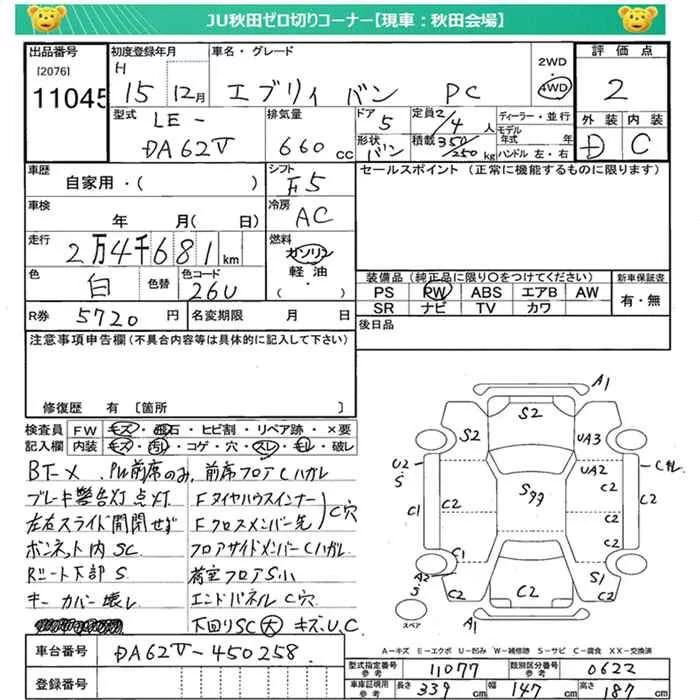 JU秋田ゼロ切りコーナー【現車：秋田会場】
出品番号 初度登録年月 車名・グレード 2WD 4WD 評価点
[2076] H
11045 15 12月 エブリィ バン PC 2
型式 LE- DA62V 排気量 660 cc ドア 5 形状 バン 定員 2/4 人 積載 350/250 kg ディーラー・並行 モデル年式 年 ハンドル 左・右 外装 内装
D C
車歴 自家用・( ) シフト F5 セールスポイント (正常に機能するものに限ります)
車検 年 月(日) 冷房 AC
走行 2万4千681km 燃料 ガソリン 軽油・( )
色 白 色替 色コード 26U
装備品 (純正品に限り○をつけてください) 新車保証書
PS PW ABS エアB AW 有・無
SR ナビ TV カワ
R券 5720 円 名変期限 月 日 後日品
注意事項申告欄 (不具合内容等は具体的に記入して下さい)
修復歴 有 [箇所 ]
検査員記入欄 FW キズ・飛石・ヒビ割・リペア跡・×要
内装 キズ・汚れ・コゲ・穴・スレ・キレ・破レ
BT-× PW前席のみ 前席フロアCハガレ
ブレーキ警告灯点灯 Fタイヤハウスインナー
左右スライド開閉せず Fクロスメンバー先 C穴
ボンネット内SC フロアサイドメンバーCハガレ
Rシート下部S 荷室フロアS小
キーカバー壊レ エンドパネルC穴
下回りSC大 キズ、U、C
A1
S2
S2
UA3
U2
S
UA2
C2
S99
C1
C2
C2
C2
C1
A2
S
S1
C2
C2
C2
スペア
A1
A-キズ E-エクボ U-凹み W-補修跡 S-サビ C-腐食 XX-交換済
車台番号 DA62V-450258
型式指定番号 参考 11077 類別区分番号 参考 0622
登録番号
車庫証明用 参考 長さ 339 cm 幅 147 cm 高さ 187 cm